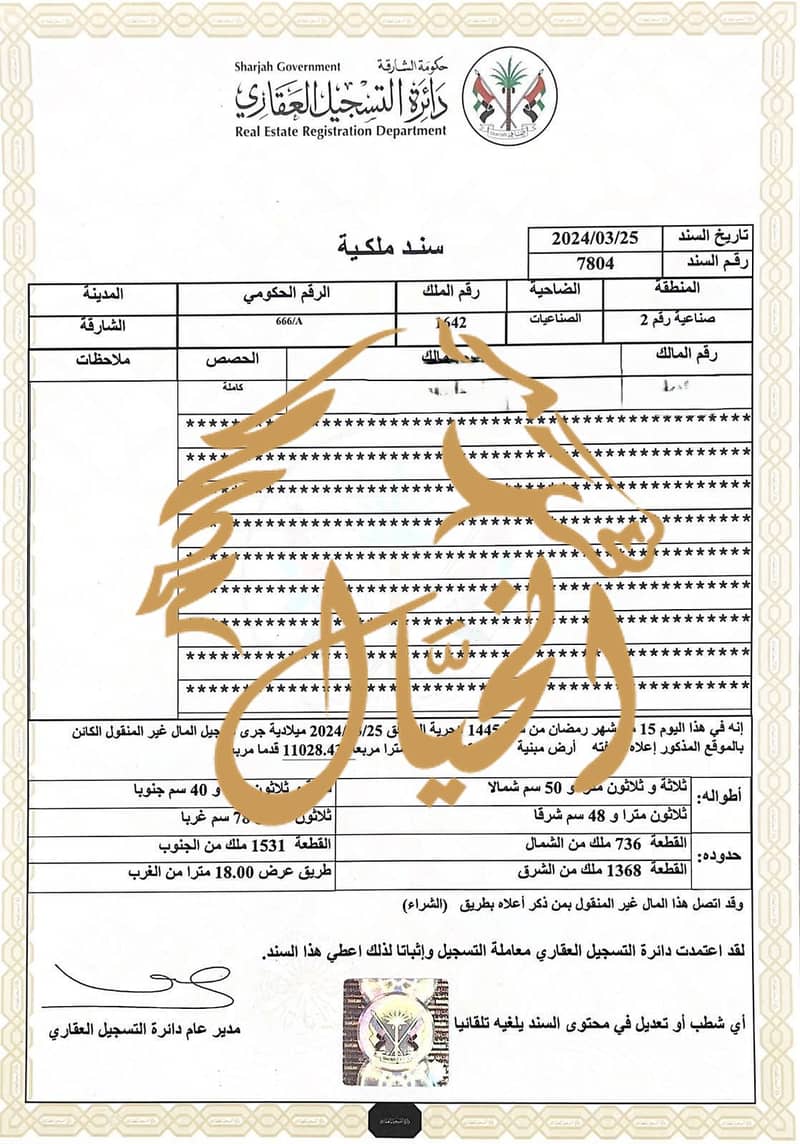 حكومة الشارقة
Sharjah Government
دائرة التسجيل العقاري
Real Estate Registration Department
سند ملكية
تاريخ السند 2024/03/25
رقم السند 7804
المنطقة الضاحية رقم الملك الرقم الحكومي المدينة
صناعية رقم 2 الصناعيات 1642 666/A الشارقة
رقم المالك المالك الحصص ملاحظات
كاملة
*****************************************
*****************************************
*****************************************
*****************************************
*****************************************
*****************************************
*****************************************
*****************************************
*****************************************
الخيال
إنه في هذا اليوم 15 شهر رمضان من 1445 ميلادية جرى المال غير المنقول الكائن
بالموقع المذكور إعلاه أرض مبنية قدما
أطواله: ثلاثة و ثلاثون مترا و 50 سم شمالا ثلاثون و 40 سم جنوبا
ثلاثون مترا و 48 سم شرقا ثلاثون 78 سم غربا
حدوده: القطعة 736 ملك من الشمال القطعة 1531 ملك من الجنوب
القطعة 1368 ملك من الشرق طريق عرض 18.00 مترا من الغرب
وقد اتصل هذا المال غير المنقول بمن ذكر أعلاه بطريق (الشراء)
لقد اعتمدت دائرة التسجيل العقاري معاملة التسجيل وإثباتا لذلك اعطي هذا السند.
أي شطب أو تعديل في محتوى السند يلغيه تلقائيا
مدير عام دائرة التسجيل العقاري